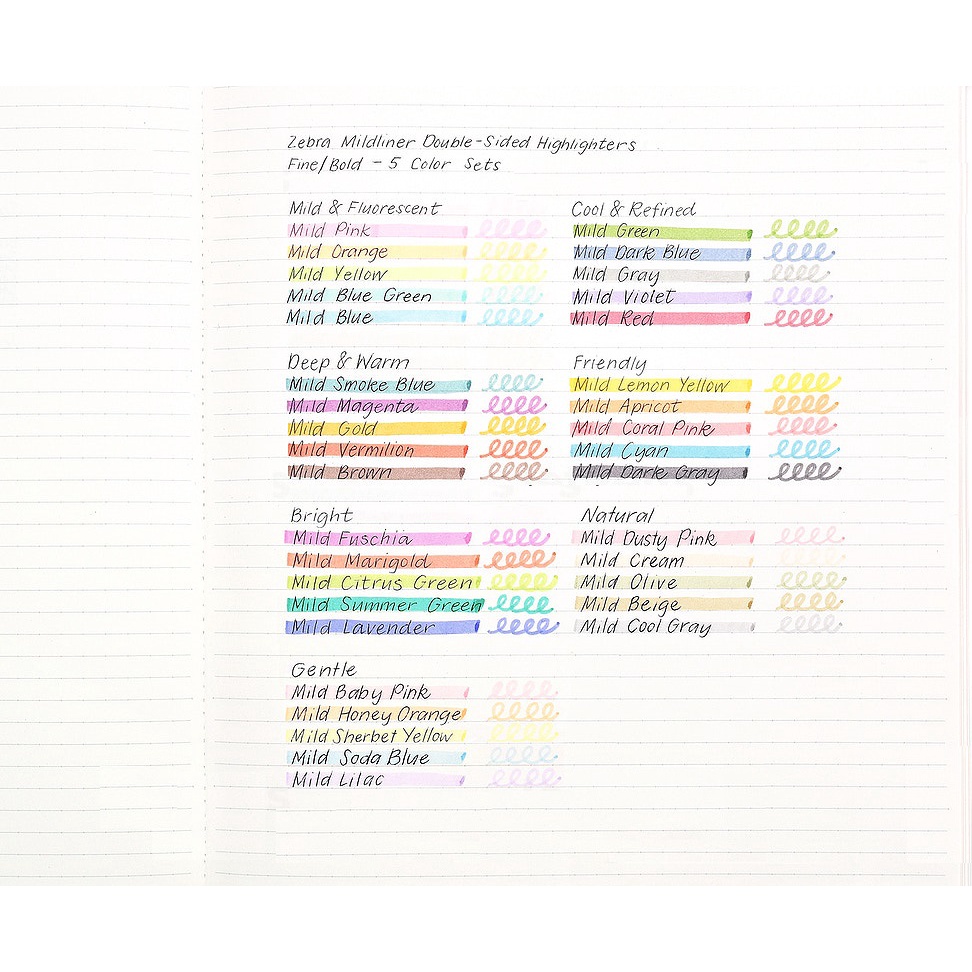 Zebra Mildliner Double-Sided Highlighters
Fine/Bold - 5 Color Sets
Mild & Fluorescent
Mild Pink
Mild Orange
Mild Yellow
Mild Blue Green
Mild Blue
Cool & Refined
Mild Green
Mild Dark Blue
Mild Gray
Mild Violet
Mild Red
Deep & Warm
Mild Smoke Blue
Mild Magenta
Mild Gold
Mild Vermilion
Mild Brown
Friendly
Mild Lemon Yellow
Mild Apricot
Mild Coral Pink
Mild Cyan
Mild Dark Gray
Bright
Mild Fuschia
Mild Marigold
Mild Citrus Green
Mild Summer Green
Mild Lavender
Natural
Mild Dusty Pink
Mild Cream
Mild Olive
Mild Beige
Mild Cool Gray
Gentle
Mild Baby Pink
Mild Honey Orange
Mild Sherbet Yellow
Mild Soda Blue
Mild Lilac